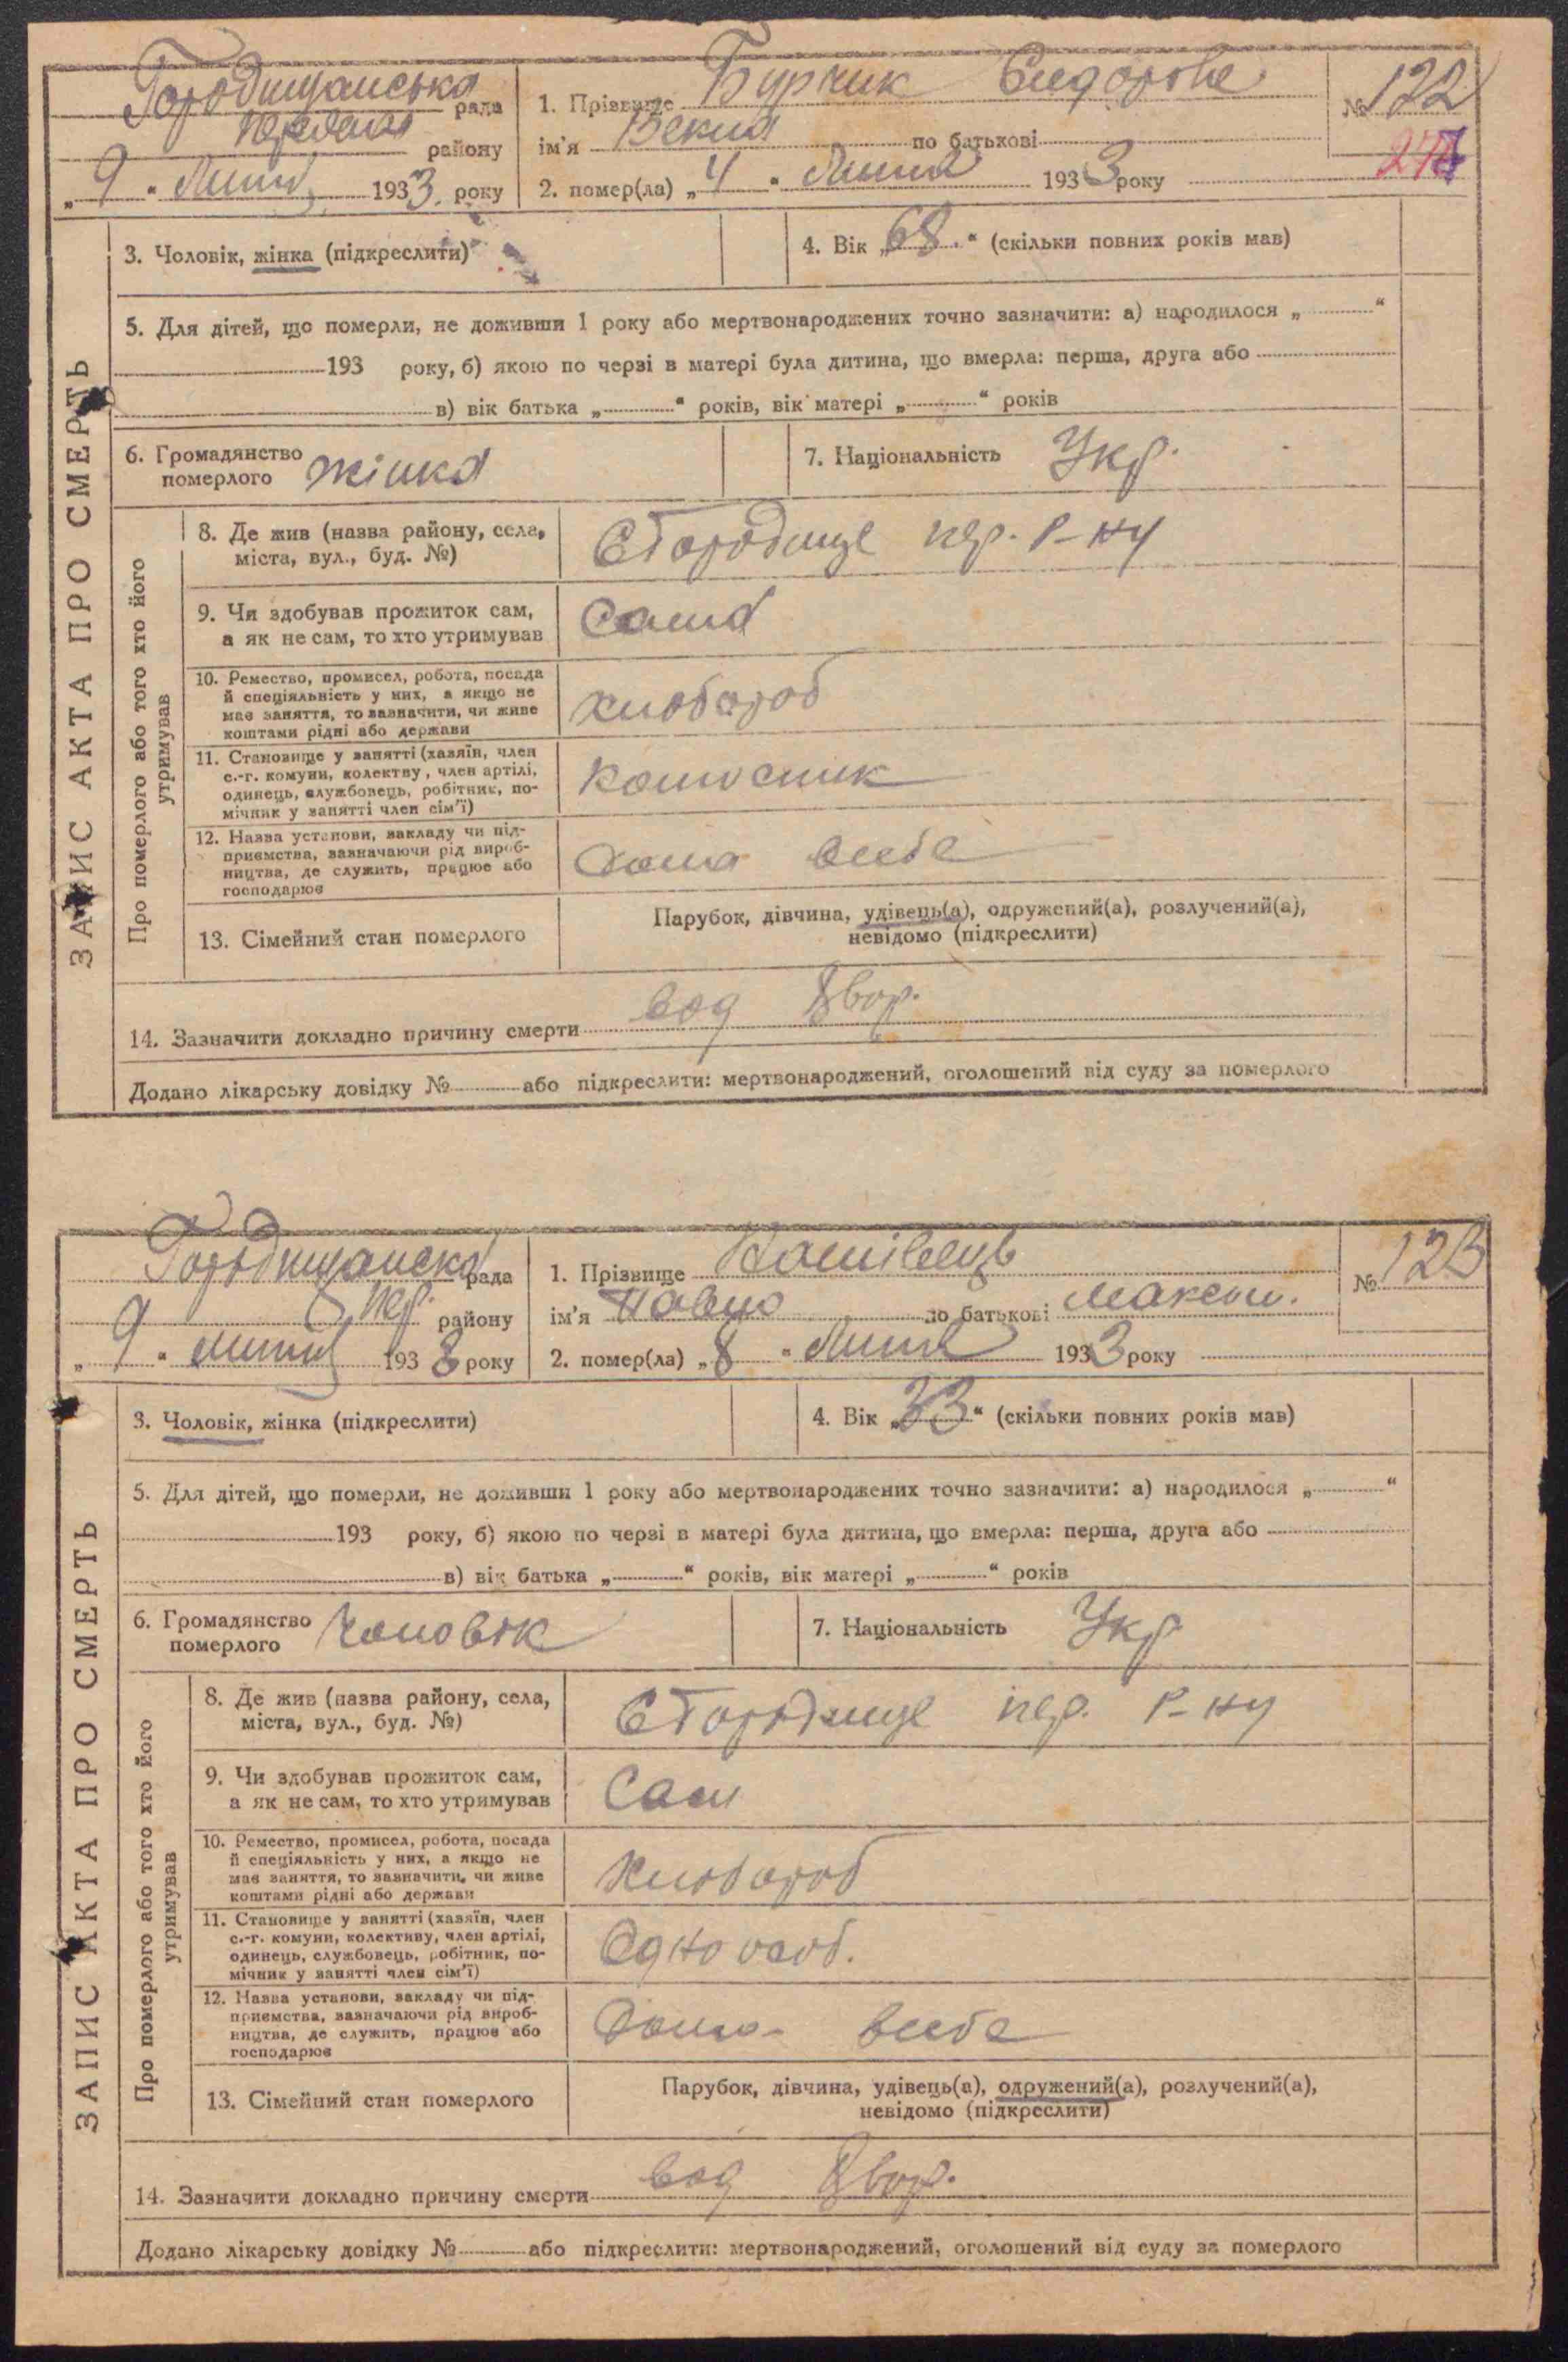 ЗАПИС АКТА ПРО СМЕРТЬ
Городищанська рада
району
„ 9 “ Липня 1933 року
1. Прізвище Бурчик Сидорова
ім'я по батькові
2. помер(ла) „ 4 “ Липня 1933 року
№ 122
3. Чоловік, жінка (підкреслити)
4. Вік „ 68 “ (скільки повних років мав)
5. Для дітей, що померли, не доживши 1 року або мертвонароджених точно зазначити: а) народилося „ “
193 року, б) якою по черзі в матері була дитина, що вмерла: перша, друга або
в) вік батька „ “ років, вік матері „ “ років
6. Громадянство
померлого жінка
7. Національність Укр.
Про померлого або того хто його
утримував
8. Де жив (назва району, села,
міста, вул., буд. №)
С Городище пер. р-ну
9. Чи здобував прожиток сам,
а як не сам, то хто утримував
Сама
10. Ремество, промисел, робота, посада
й спеціяльність у них, а якщо не
має заняття, то зазначити, чи живе
коштами рідні або держави
хлібороб
11. Становище у занятті (хазяїн, член
с.-г. комуни, колективу, член артілі,
одинець, службовець, робітник, по-
мічник у занятті член сім'ї)
12. Назва установи, закладу чи під-
приємства, зазначаючи рід вироб-
ництва, де служить, працює або
господарює
дома вcебе
13. Сімейний стан померлого
Парубок, дівчина, удівець(а), одружений(а), розлучений(а),
невідомо (підкреслити)
14. Зазначити докладно причину смерти вод хвор.
Додано лікарську довідку № або підкреслити: мертвонароджений, оголошений від суду за померлого
ЗАПИС АКТА ПРО СМЕРТЬ
Городищанска рада
Пер. району
„ 9 “ липня 1933 року
1. Прізвище
ім'я Павло по батькові Максим.
2. помер(ла) „ 8 “ Липня 1933 року
№ 123
3. Чоловік, жінка (підкреслити)
4. Вік „ 33 “ (скільки повних років мав)
5. Для дітей, що померли, не доживши 1 року або мертвонароджених точно зазначити: а) народилося „ “
193 року, б) якою по черзі в матері була дитина, що вмерла: перша, друга або
в) вік батька „ “ років, вік матері „ “ років
6. Громадянство
померлого Чоловік
7. Національність Укр
Про померлого або того хто його
утримував
8. Де жив (назва району, села,
міста, вул., буд. №)
С Городище пер. р-ну
9. Чи здобував прожиток сам,
а як не сам, то хто утримував
Сам
10. Ремество, промисел, робота, посада
й спеціяльність у них, а якщо не
має заняття, то зазначити, чи живе
коштами рідні або держави
Хлібороб
11. Становище у занятті (хазяїн, член
с.-г. комуни, колективу, член артілі,
одинець, службовець, робітник, по-
мічник у занятті член сім'ї)
Одноосоb.
12. Назва установи, закладу чи під-
приємства, зазначаючи рід вироб-
ництва, де служить, працює або
господарює
Дома всебе
13. Сімейний стан померлого
Парубок, дівчина, удівець(а), одружений(а), розлучений(а),
невідомо (підкреслити)
14. Зазначити докладно причину смерти вод хвор.
Додано лікарську довідку № або підкреслити: мертвонароджений, оголошений від суду за померлого